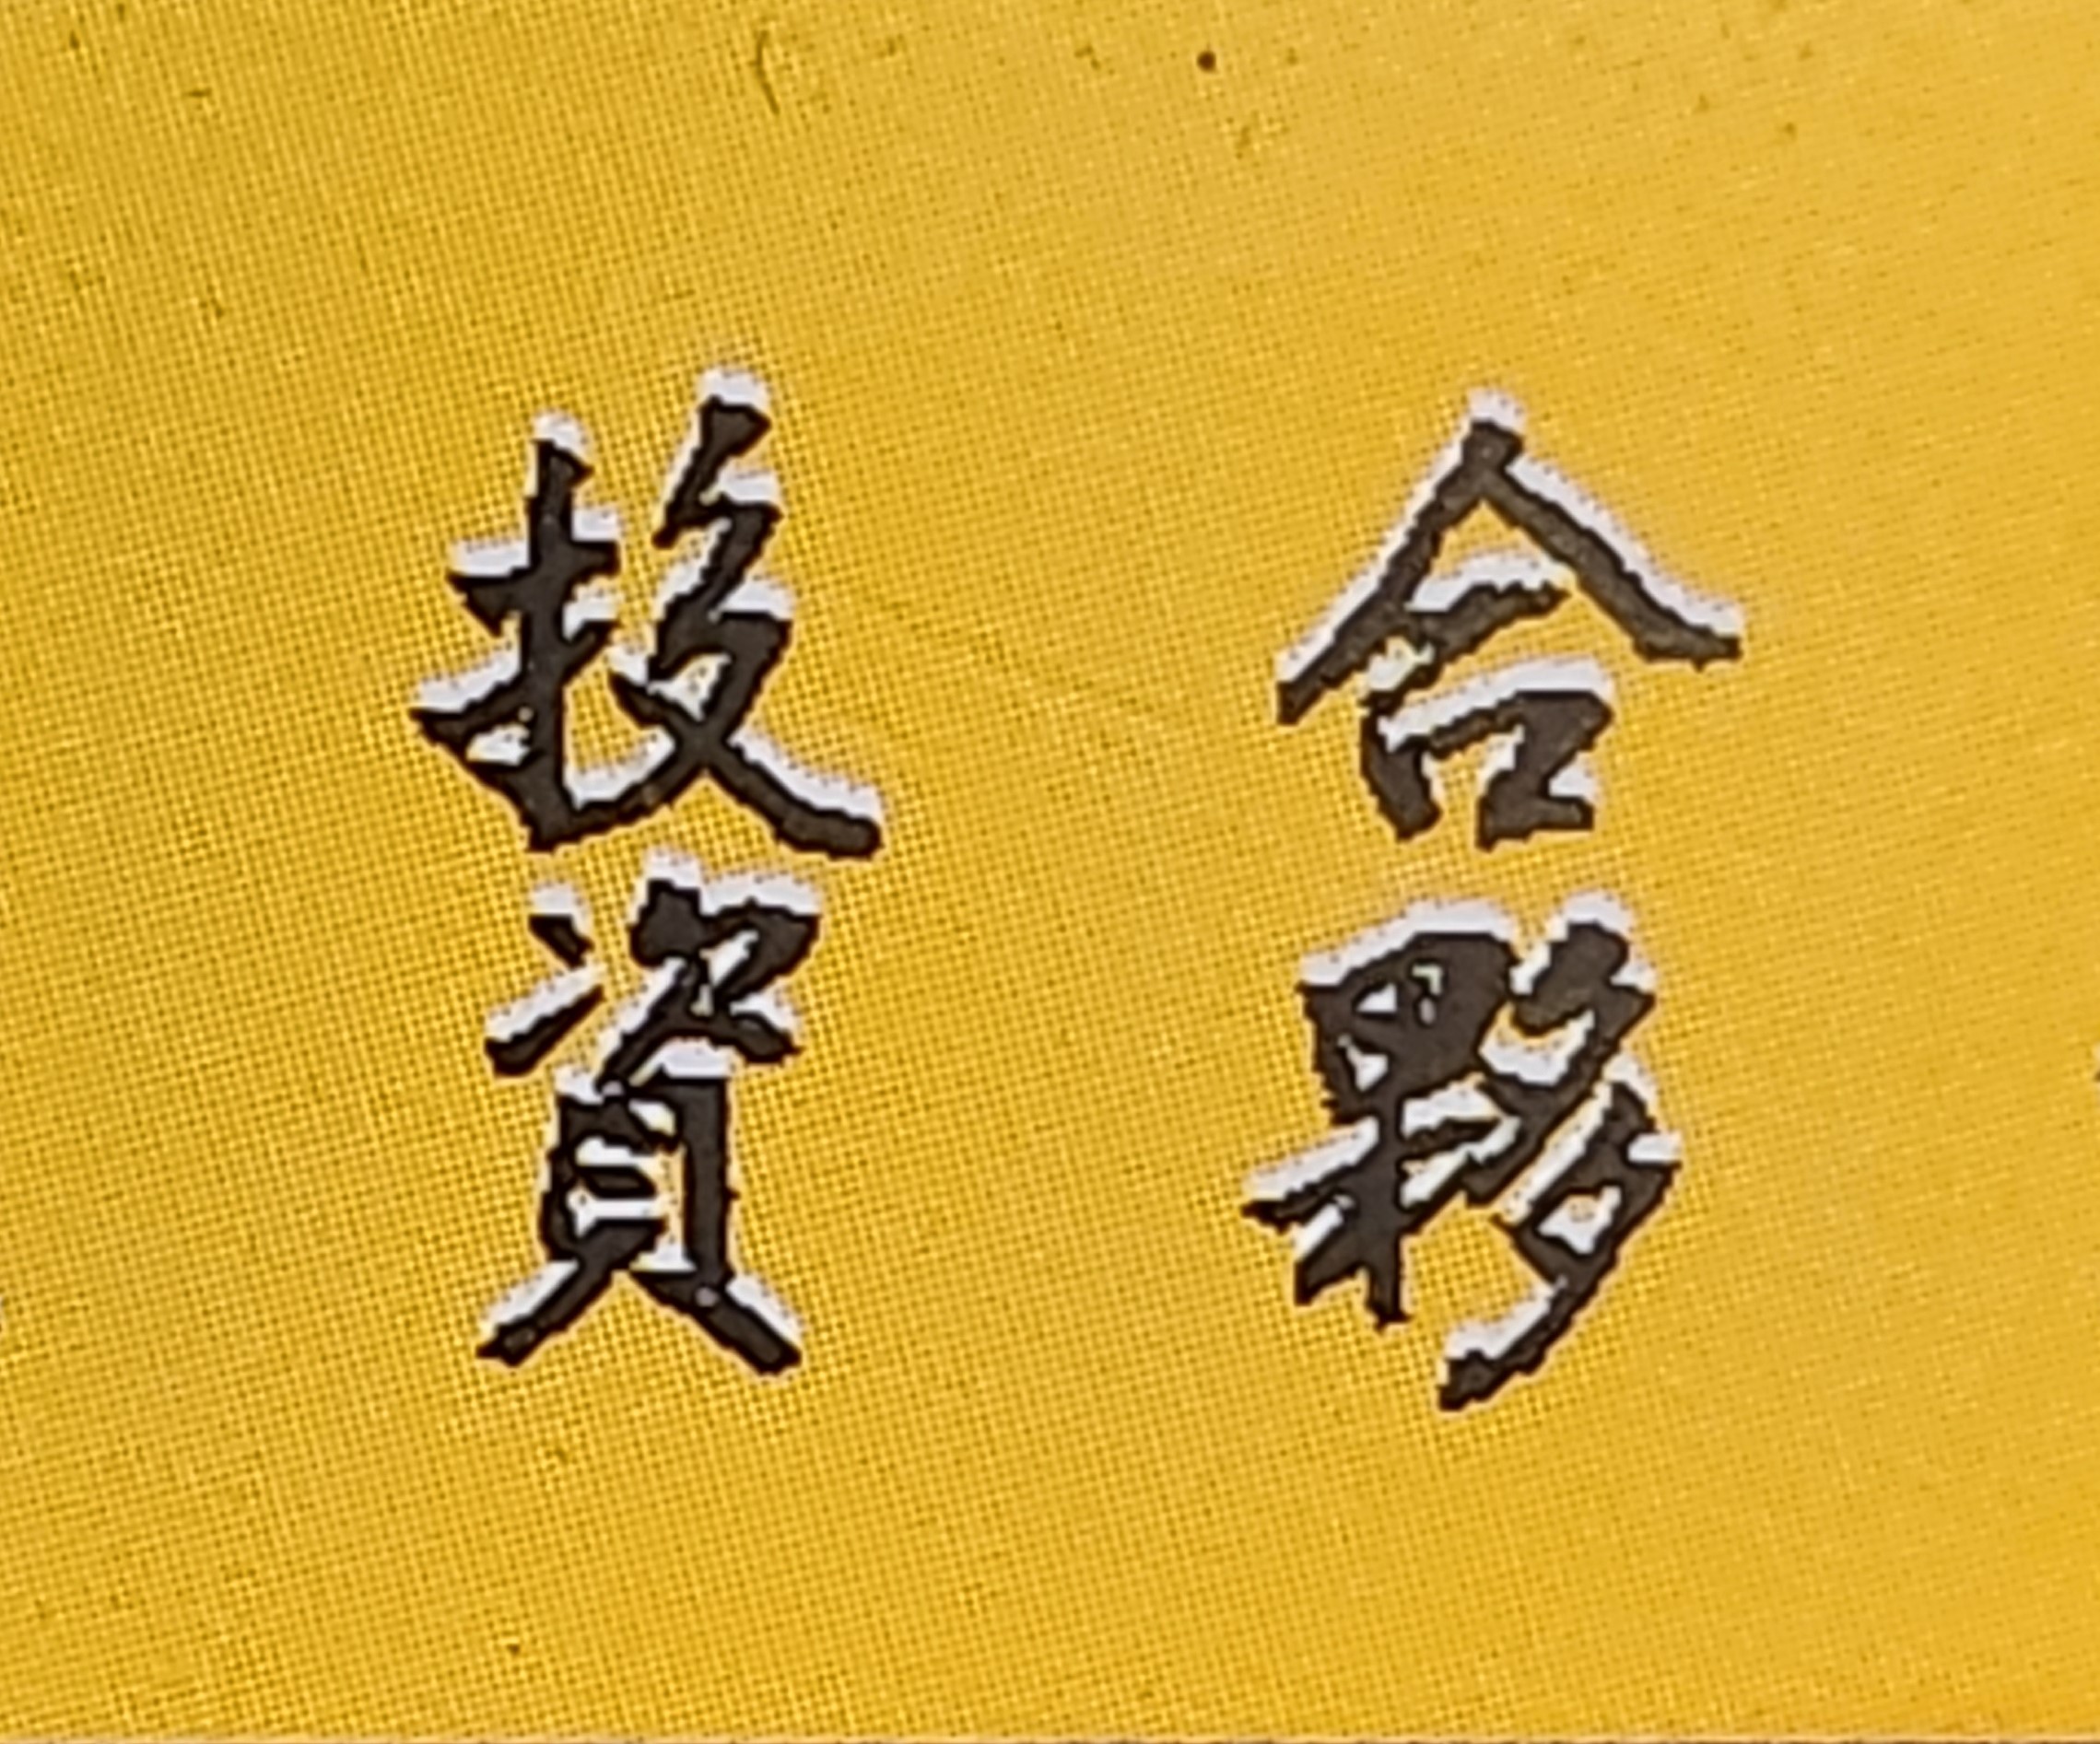 合夥
投資